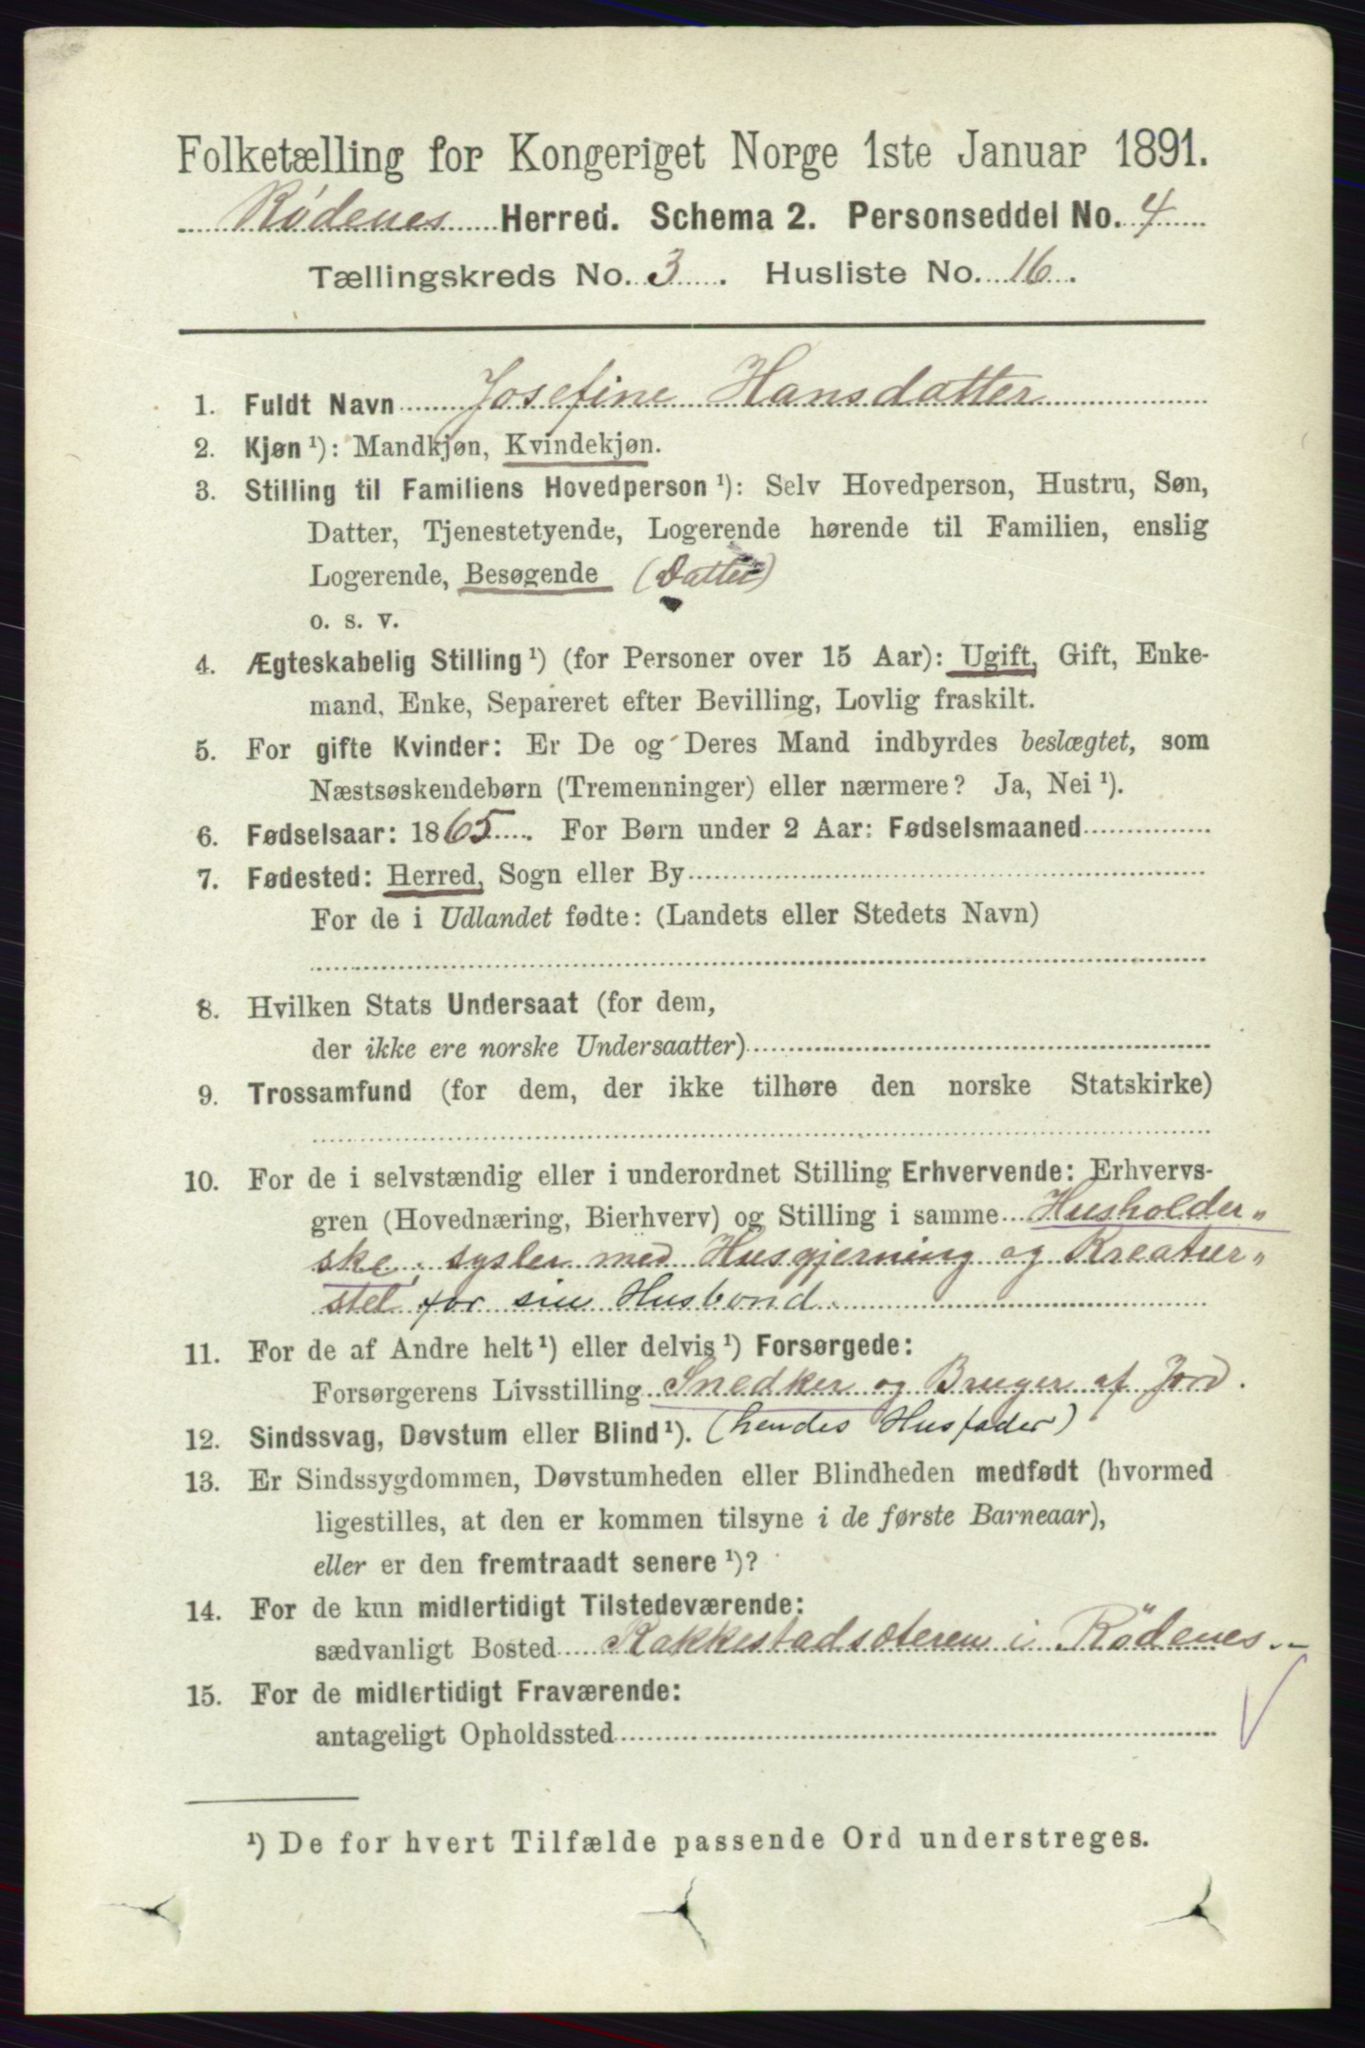 Folketælling for Kongeriget Norge 1ste Januar 1891.
Rødenes Herred. Schema 2. Personseddel No. 4
Tællingskreds No. 3. Husliste No. 16.
1. Fuldt Navn Josefine Hansdatter
2. Kjøn ¹): Mandkjøn, Kvindekjøn.
3. Stilling til Familiens Hovedperson ¹): Selv Hovedperson, Hustru, Søn,
Datter, Tjenestetyende, Logerende hørende til Familien, enslig
Logerende, Besøgende (Datter)
o. s. v.
4. Ægteskabelig Stilling ¹) (for Personer over 15 Aar): Ugift, Gift, Enke-
mand, Enke, Separeret efter Bevilling, Lovlig fraskilt.
5. For gifte Kvinder: Er De og Deres Mand indbyrdes beslægtet, som
Næstsøskendebørn (Tremenninger) eller nærmere? Ja, Nei ¹).
6. Fødselsaar: 1865. For Børn under 2 Aar: Fødselsmaaned
7. Fødested: Herred, Sogn eller By
For de i Udlandet fødte: (Landets eller Stedets Navn)
8. Hvilken Stats Undersaat (for dem,
der ikke ere norske Undersaatter)
9. Trossamfund (for dem, der ikke tilhøre den norske Statskirke)
10. For de i selvstændig eller i underordnet Stilling Erhvervende: Erhvervs-
gren (Hovednæring, Bierhverv) og Stilling i samme Husholder„
ske, sysler med Husgjerning og Kreatur„
stel for sin Husbond.
11. For de af Andre helt ¹) eller delvis ¹) Forsørgede:
Forsørgerens Livsstilling Snedker og Bruger af Jord.
12. Sindssvag, Døvstum eller Blind ¹). (hendes Husfader)
13. Er Sindssygdommen, Døvstumheden eller Blindheden medfødt (hvormed
ligestilles, at den er kommen tilsyne i de første Barneaar),
eller er den fremtraadt senere ¹)?
14. For de kun midlertidigt Tilstedeværende:
sædvanligt Bosted Rakkestadsæteren i Rödenes.
15. For de midlertidigt Fraværende:
antageligt Opholdssted
¹) De for hvert Tilfælde passende Ord understreges.